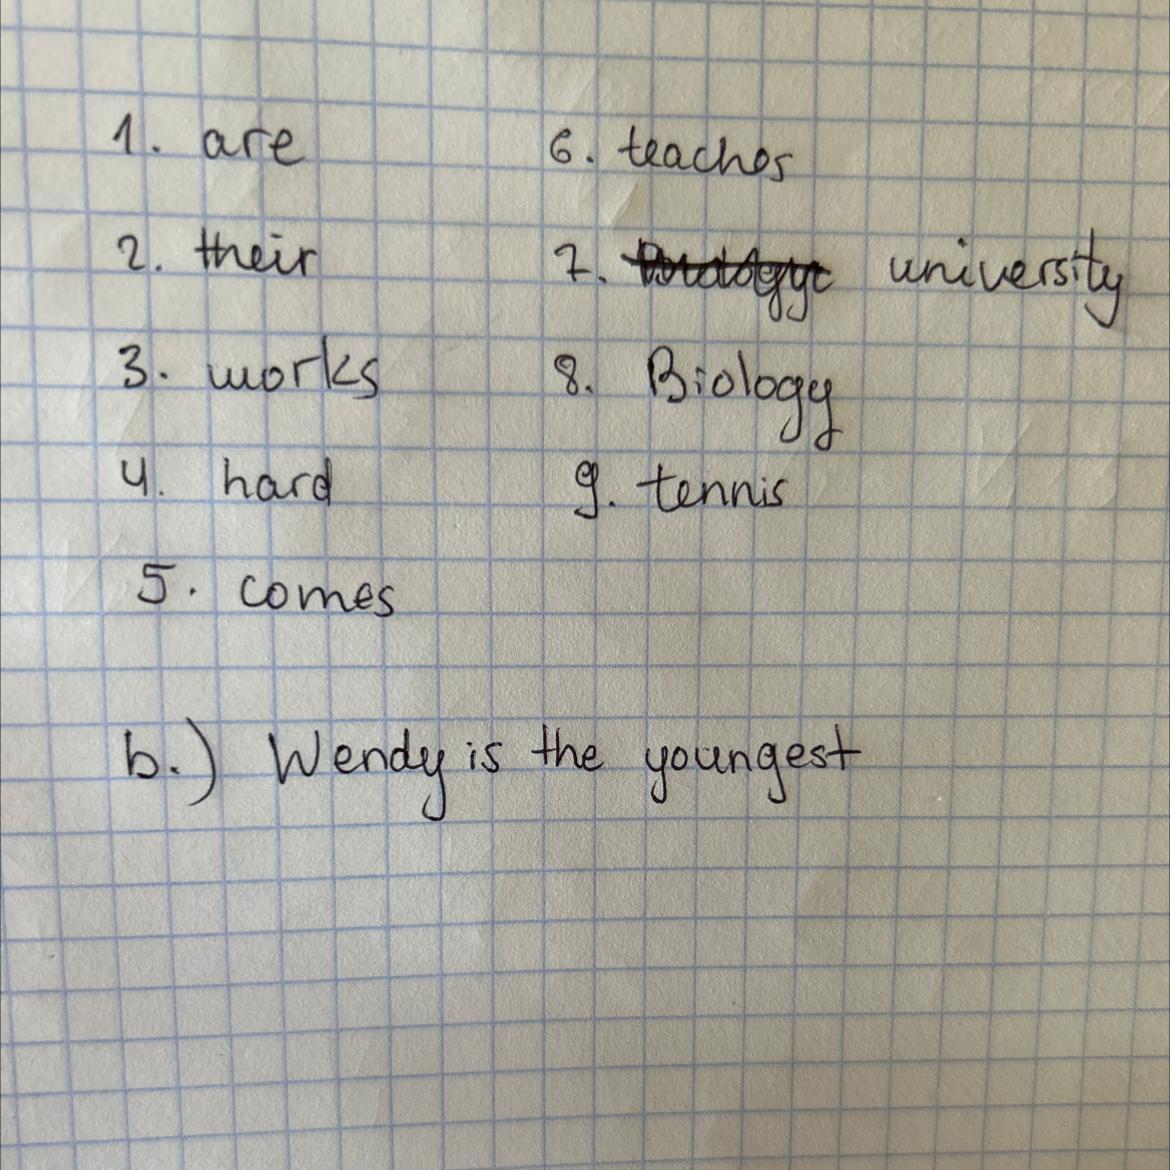 1. are
2. their
3. works
4. hard
5. comes
6. teaches
7. university
8. Biology
9. tennis
b.) Wendy is the youngest